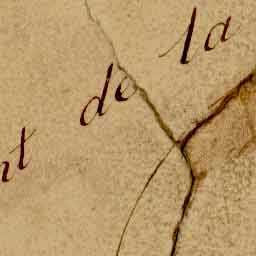 nt de la